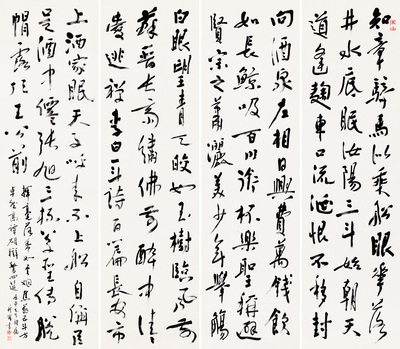 知章騎馬似乘船眼花落
井水底眠汝陽三斗始朝天
道逢麴車口流涎恨不移封
向酒泉左相日興費萬錢飲
如長鯨吸百川銜杯樂聖稱避
賢宗之蕭灑美少年舉觴
白眼望青天皎如玉樹臨風前
蘇晉長齋繡佛前醉中往往
愛逃禪李白一斗詩百篇長安市
上酒家眠天子呼來不上船自稱臣
是酒中僊張旭三杯草聖傳脫
帽露頂王公前
揮毫落紙如雲煙焦遂五斗方
卓然高談雄辯驚四筵